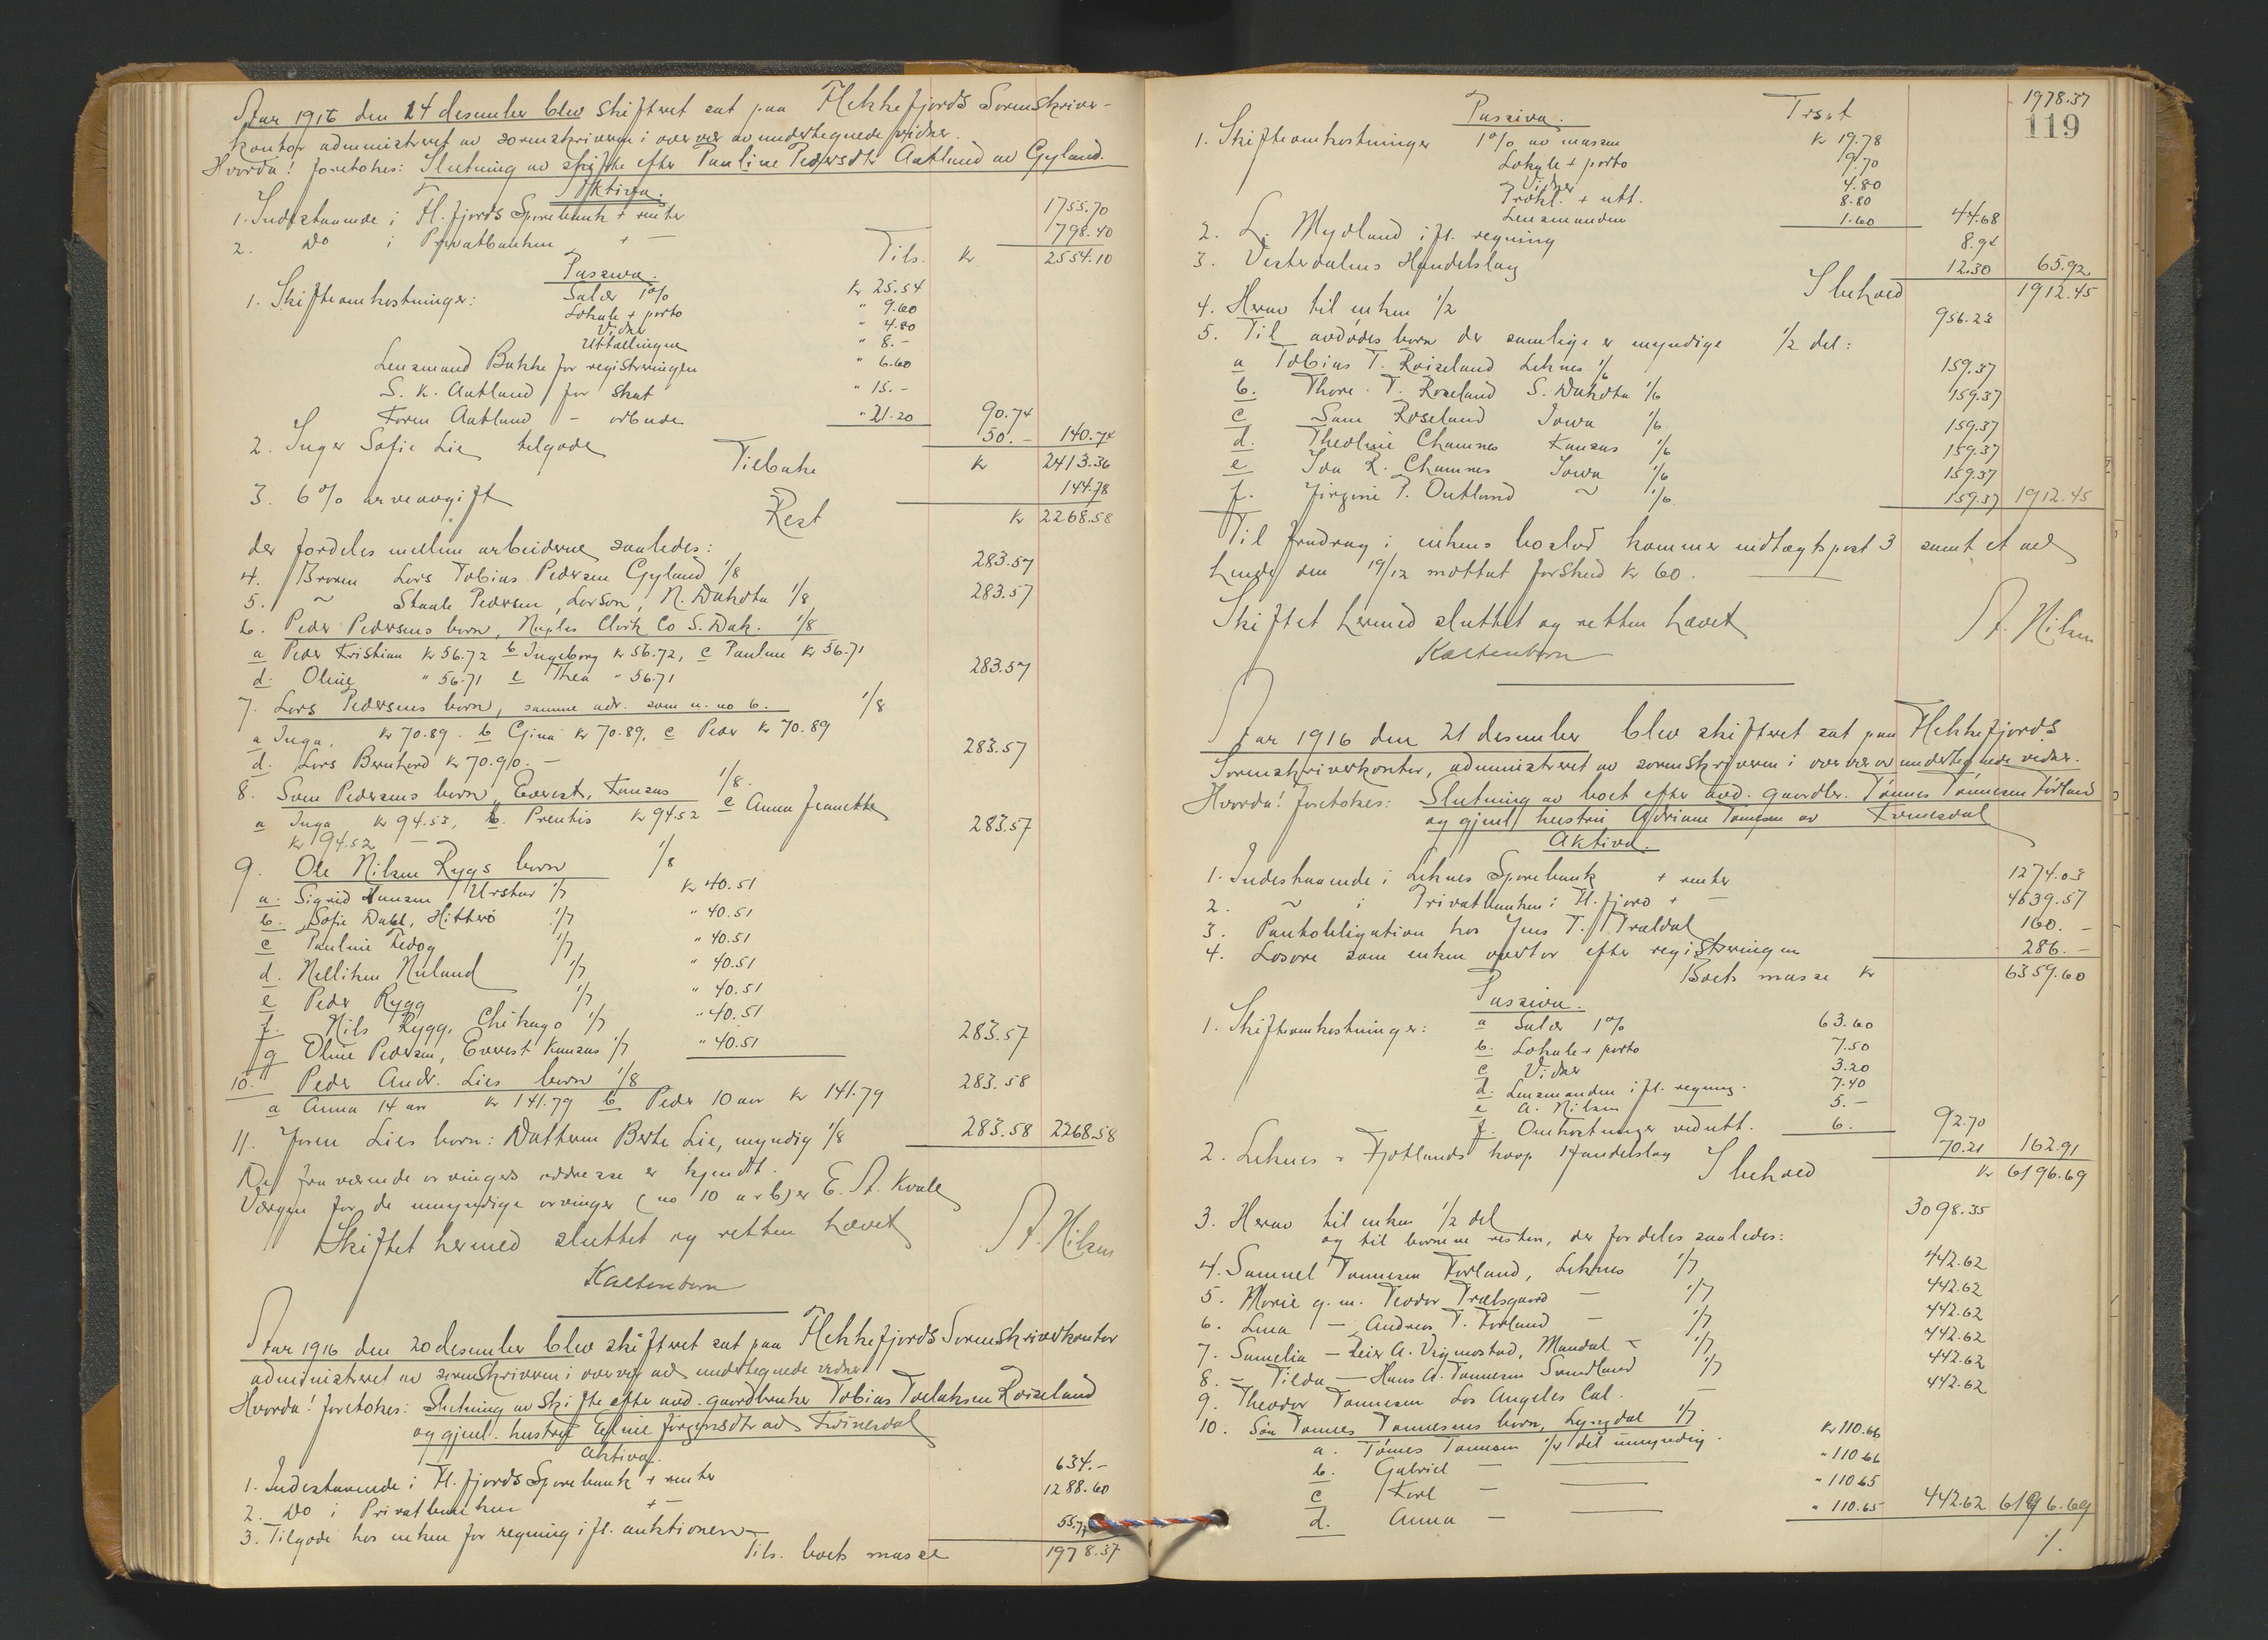 Aar 1916 den 14 desember blev skifteret sat paa Flekkefjords Sorenskriver-
kontor administreret av sorenskriveren i overvær av undertegnede vidner.
Hvorda! foretokes: Slutning av skifte efter Pauline Pedersdtr Aatland av Gyland.
Aktiva.
1. Indestaaende i Fl.fjords Sparebank + renter 1755.70
2. Do i Privatbanken + — 798.40
Tils. kr 2554.10
Passiva.
1. Skifteomkostninger: Salær 1% kr 25.54
Lokale + porto " 9.60
Vidner " 4.80
Utstellingen " 8.-
Lensmand Bakke for registreringen " 6.60
S. K. Aatland for skat " 15.-
Karen Aatland - arbeide " 21.20 90.74
2. Inger Sofie Lie tilgode 50.- 140.74
Tilbake kr 2413.36
3. 6% arveavgift 144.78
Rest kr 2268.58
der fordeles mellem arvingerne saaledes:
4. Broren Lars Tobias Pedersen Gyland 1/8 283.57
5. ~ Staale Pedersen, Larson, N. Dakota 1/8 283.57
6. Peder Pedersens born, Naples Clark Co S. Dak. 1/8
a Peder Kristian kr 56.72 b Ingeborg kr 56.72, c Pauline kr 56.71
d. Oline " 56.71 e Thea " 56.71 283.57
7. Lars Pedersens born, samme adr. som u. no 6. 1/8
a Inga, kr 70.89. b Gina kr 70.89, c Peder kr 70.89
d. Lars Bernhard kr 70.90. — 283.57
8. Sven Pedersens born, Everest, Kansas 1/8.
a Inga kr 94.53, b. Prentis kr 94.52 c Anna Jeanette
kr 94.52 — 283.57
9. Ole Nilsen Ryggs born 1/8
a. Sigrid Hansen, Urstad 1/7 kr 40.51
b. Sofie Dahl, Hitterø 1/7 " 40.51
c Pauline Fedog 1/7 " 40.51
d. Nelliken Nuland 1/7 " 40.51
e Peder Rygg 1/7 " 40.51
f. Nils Rygg, Chikago 1/7 " 40.51
g Oline Pedersen, Everest Kansas 1/7 " 40.51 283.57
10. Peder Andr. Lies born 1/8 283.58
a Anna 14 aar kr 141.79 b Peder 10 aar kr 141.79
11. Joren Lies born: Datteren Berte Lie, myndig 1/8 283.58 2268.58
De fraværende arvingers addresse er kjendt.
Værgen for de umyndige arvinger (no 10 a + b) er E. A. Kvale
Skiftet hermed sluttet og retten hævet
A. Nilsen
Kaltenborn
Aar 1916 den 20 desember blev skifteret sat paa Flekkefjords Sorenskriverkontor
administreret av sorenskriveren i overvær av undertegnede vidner
Hvorda! foretokes: Slutning av skifte efter avd. gaardbruker Tobias Torlaksen Roiseland
og gjenl. hustru Eline Jørgensdtr av Kvinesdal
Aktiva.
1. Indestaaende i Fl.fjords Sparebank + renter 634.-
2. Do i Privatbanken + — 1288.60
3. Tilgode hos enken for regning ifl. auktionen 55.77
Tils. boets masse 1978.37
119
Passiva. Trsat 1978.37
1. Skifteomkostninger 1% av massen kr 19.78
Lokale + porto 9.70
Vidner 4.80
Prokl. + utt. 8.80
Lensmanden 1.60 44.68
2. L. Mydland ifl. regning 8.94
3. Vesterdalens Handelslag 12.30 65.92
I behold 1912.45
4. Herav til enken 1/2 956.23
5. Til avdødes born der samtlige er myndige 1/2 del:
a Tobias T. Roiseland Liknes 1/6 159.37
b. Thore T. Roseland S. Dakota 1/6 159.37
c Sam Roseland Iowa 1/6 159.37
d. Theoline Chamnes Kansas 1/6 159.37
e Ida R. Chamnes Iowa 1/6 159.37
f. Jirgine P. Outland ~ 1/6 159.37 1912.45
Til fradrag i enkens boslod kommer indtægtspost 3 samt et ved
hende den 19/12 mottat forskud kr 60.
Skiftet hermed sluttet og retten hævet
A. Nilsen
Kaltenborn
Aar 1916 den 21 desember blev skifteret sat paa Flekkefjords
Sorenskriverkontor, administreret av sorenskriveren i overvær av undertegnede vidner.
Hvorda! foretokes: Slutning av boet efter avd. gaardbr. Tønnes Tønnesen Førland
og gjenl. hustru Adriane Tønnesen av Kvinesdal
Aktiva.
1. Indestaaende i Liknes Sparebank + renter 1274.03
2. ~ i Privatbanken i Fl.fjord + — 4639.57
3. Pantobligation hos Jens T. Trældal 160.-
4. Løsøre som enken overtar efter registreringen 286.-
Boets masse kr 6359.60
Passiva.
1. Skifteomkostninger: a Salær 1% 63.60
b. Lokale + porto 7.50
c Vidner 3.20
d. Lensmanden ifl. regning. 7.40
e A. Nilsen — 5.-
f. Omkostninger ved utt. 6. 92.70
2. Liknes & Fjotlands koop Handelslag 70.21 162.91
I behold kr 6196.69
3. Herav til enken 1/2 del 3098.35
og til bornene resten, der fordeles saaledes:
4. Samuel Tønnesen Førland, Liknes 1/7 442.62
5. Marie g.m. Teodor Trælsgaard — 1/7 442.62
6. Lina — Andreas T. Førland — 1/7 442.62
7. Samelia — Reier A. Vigmostad, Mandal 1/7 442.62
8. — Tilda — Hans A. Tønnesen Svindland 1/7 442.62
9. Theodor Tønnesen Los Angeles Cal. — 442.62
10. Søn Tønnes Tønnesens born, Lyngdal 1/7
a. Tønnes Tønnesen 1/4 del umyndig. kr 110.66
b. Gabriel — — " 110.66
c Karl — — " 110.65
d. Anna — — " 110.65 442.62 6196.69
%.